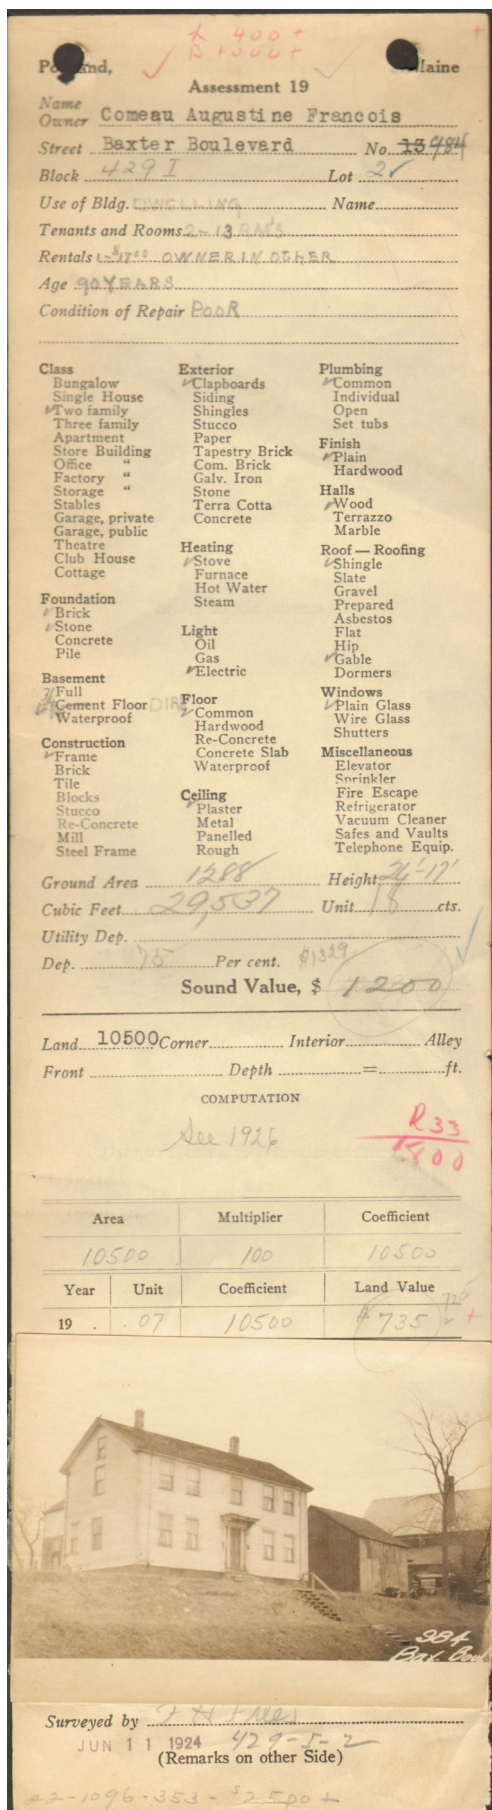 L 400 +
B 1000 +
+
Portland, Maine
Assessment 19
Name
Owner Comeau Augustine Francois
Street Baxter Boulevard No. 13 984
Block 429 I Lot 2
Use of Bldg. DWELLING Name
Tenants and Rooms 2-13 RM'S
Rentals 1-$17.00 OWNER IN OTHER
Age 90 YEARS
Condition of Repair POOR
Class
Bungalow
Single House
Two family
Three family
Apartment
Store Building
Office "
Factory "
Storage "
Stables
Garage, private
Garage, public
Theatre
Club House
Cottage
Foundation
Brick
Stone
Concrete
Pile
Basement
3/4 Full
Cement Floor DIRT
Waterproof
Construction
Frame
Brick
Tile
Blocks
Stucco
Re-Concrete
Mill
Steel Frame
Exterior
Clapboards
Siding
Shingles
Stucco
Paper
Tapestry Brick
Com. Brick
Galv. Iron
Stone
Terra Cotta
Concrete
Heating
Stove
Furnace
Hot Water
Steam
Light
Oil
Gas
Electric
Floor
Common
Hardwood
Re-Concrete
Concrete Slab
Waterproof
Ceiling
Plaster
Metal
Panelled
Rough
Plumbing
Common
Individual
Open
Set tubs
Finish
Plain
Hardwood
Halls
Wood
Terrazzo
Marble
Roof — Roofing
Shingle
Slate
Gravel
Prepared
Asbestos
Flat
Hip
Gable
Dormers
Windows
Plain Glass
Wire Glass
Shutters
Miscellaneous
Elevator
Sprinkler
Fire Escape
Refrigerator
Vacuum Cleaner
Safes and Vaults
Telephone Equip.
Ground Area 1288 Height 26'-17'
Cubic Feet 29,537 Unit 18 cts.
Utility Dep.
Dep. 75 Per cent. $1329
Sound Value, $ 1200
Land 10500 Corner Interior Alley
Front Depth = ft.
COMPUTATION
See 1926
R 33
1800
Area Multiplier Coefficient
10500 100 10500
Year Unit Coefficient Land Value
725
19 .07 10500 $735 +
984
Bax. Boul
Surveyed by
JUN 11 1924 429-I-2
(Remarks on other Side)
22-1096-353-$2500+